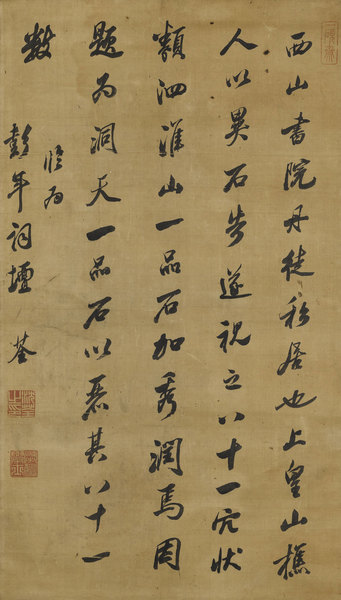 西山書院丹徒私居也上皇山樵
人以異石告遂視之八十一穴狀
類泗淮山一品石加秀潤焉因
題為洞天一品石以丽其八十一
數
臨為
彭年詞壇 荃